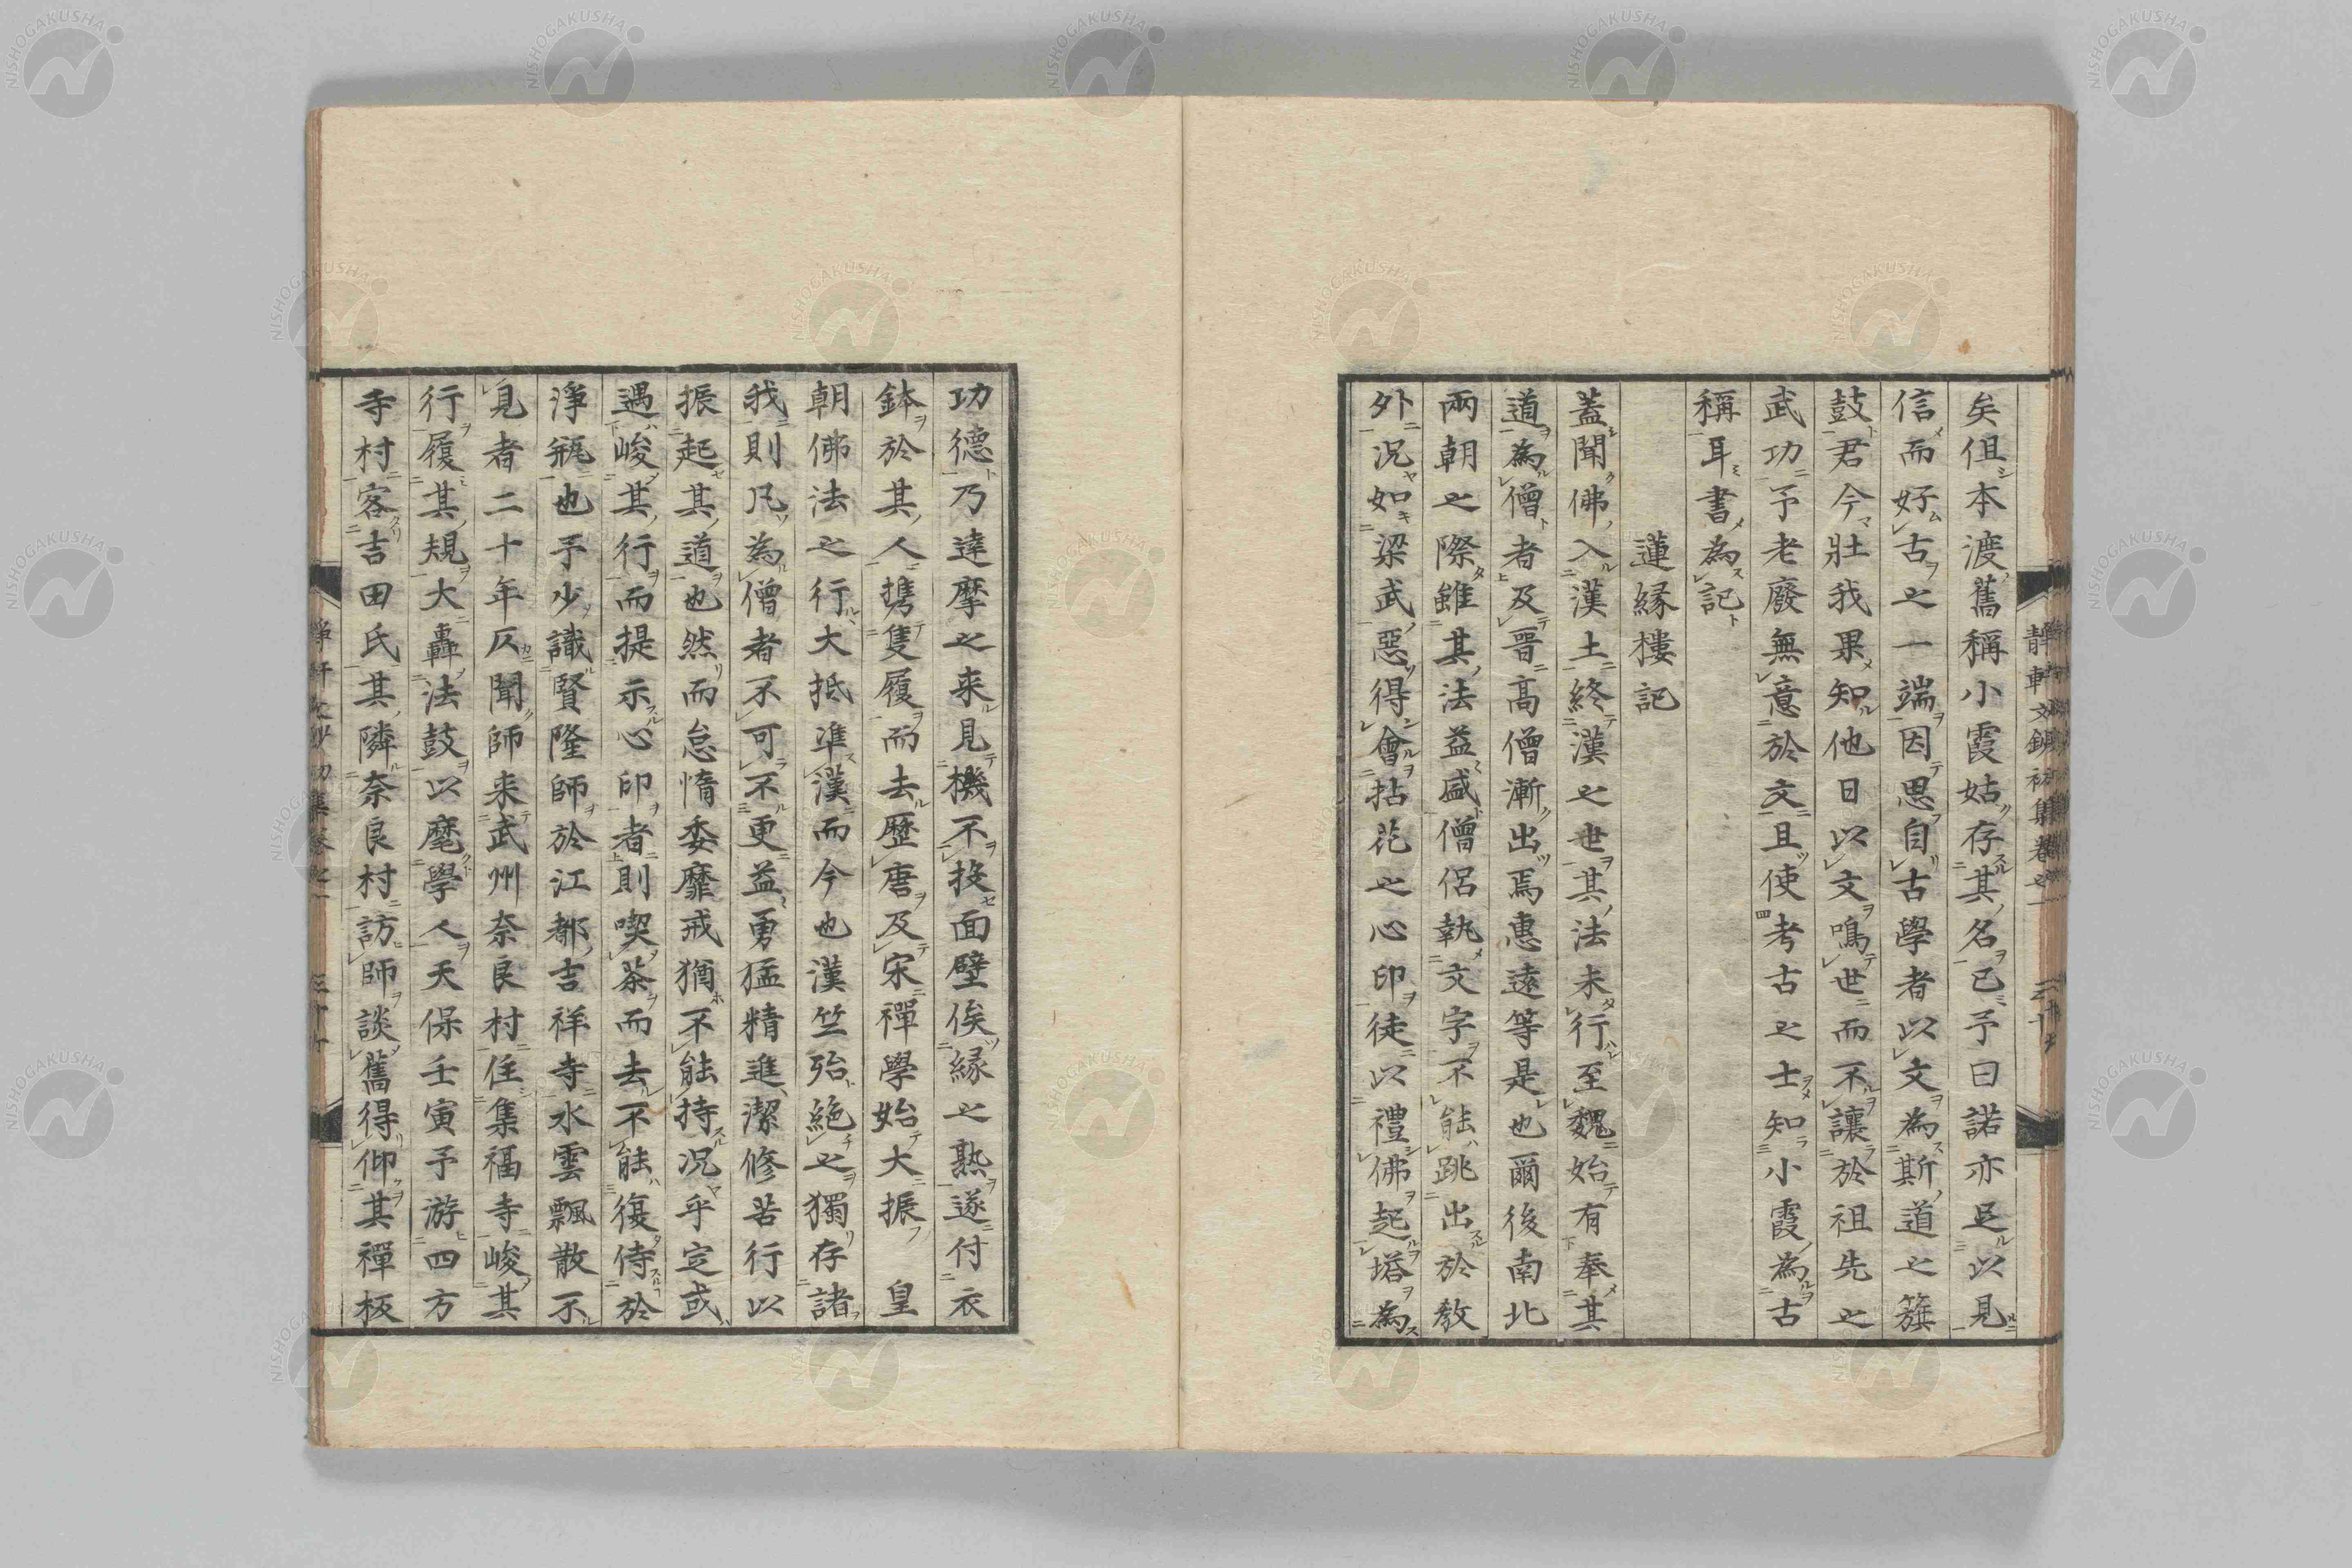 矣但本渡舊稱小霞姑存其名已予曰諾亦足以見
信而好古之一端因思自古學者以文為斯道之籏
鼓君今壯我果知他日以文鳴世而不讓於祖先之
武功予老廢無意於文且使考古之士知小霞為古
稱耳書為記
蓮緣樓記
蓋聞佛入漢土終漢之世其法未行至魏始有奉其
道為僧者及晉高僧漸出焉惠遠等是也爾後南北
兩朝之際雖其法益盛僧侶執文字不能跳出於教
外況如梁武惡得會拈花之心印徒以禮佛起塔為
功德乃達摩之来見機不投面壁俟緣之熟遂付衣
鉢於其人携隻履而去歷唐及宋禪學始大振　皇
朝佛法之行大抵準漢而今也漢竺殆絕之獨存諸
我則凡為僧者不可不更益勇猛精進潔修苦行以
振起其道也然而怠惰委靡戒猶不能持況乎定或
遇峻其行而提示心印者則喫茶而去不能復侍於
淨瓶也予少識賢隆師於江都吉祥寺水雲飄散不
見者二十年仄聞師来武州奈良村住集福寺峻其
行履其規大轟法鼓以麾學人天保壬寅予游四方
寺村客吉田氏其隣奈良村訪師談舊得仰其禪板
靜軒文鈔初集卷之一
NISHOGAKUSHA